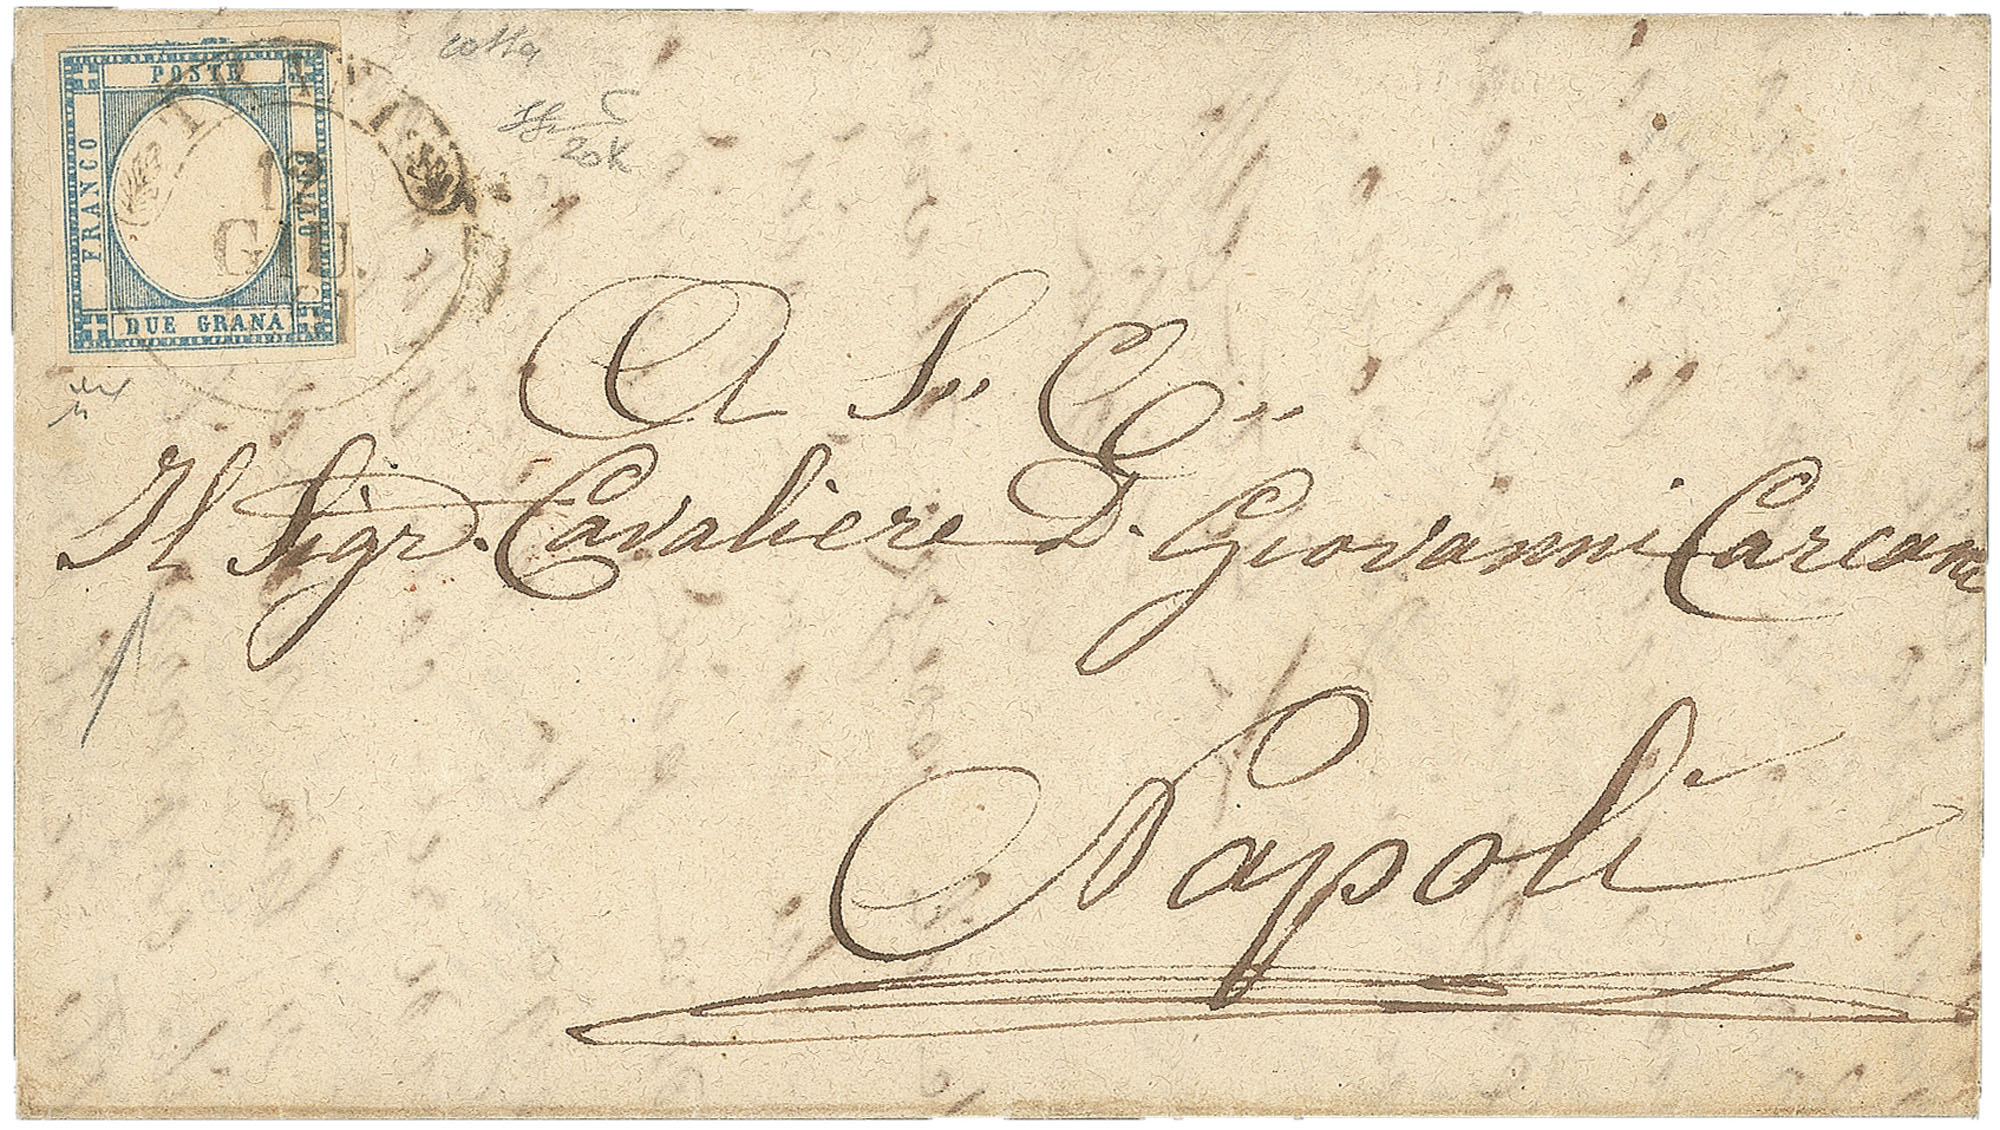 POSTE
FRANCO
BOLLO
DUE GRANA
12
GIU.
A S. E.
Il Sigr. Cavaliere D. Giovanni Carcani
Napoli